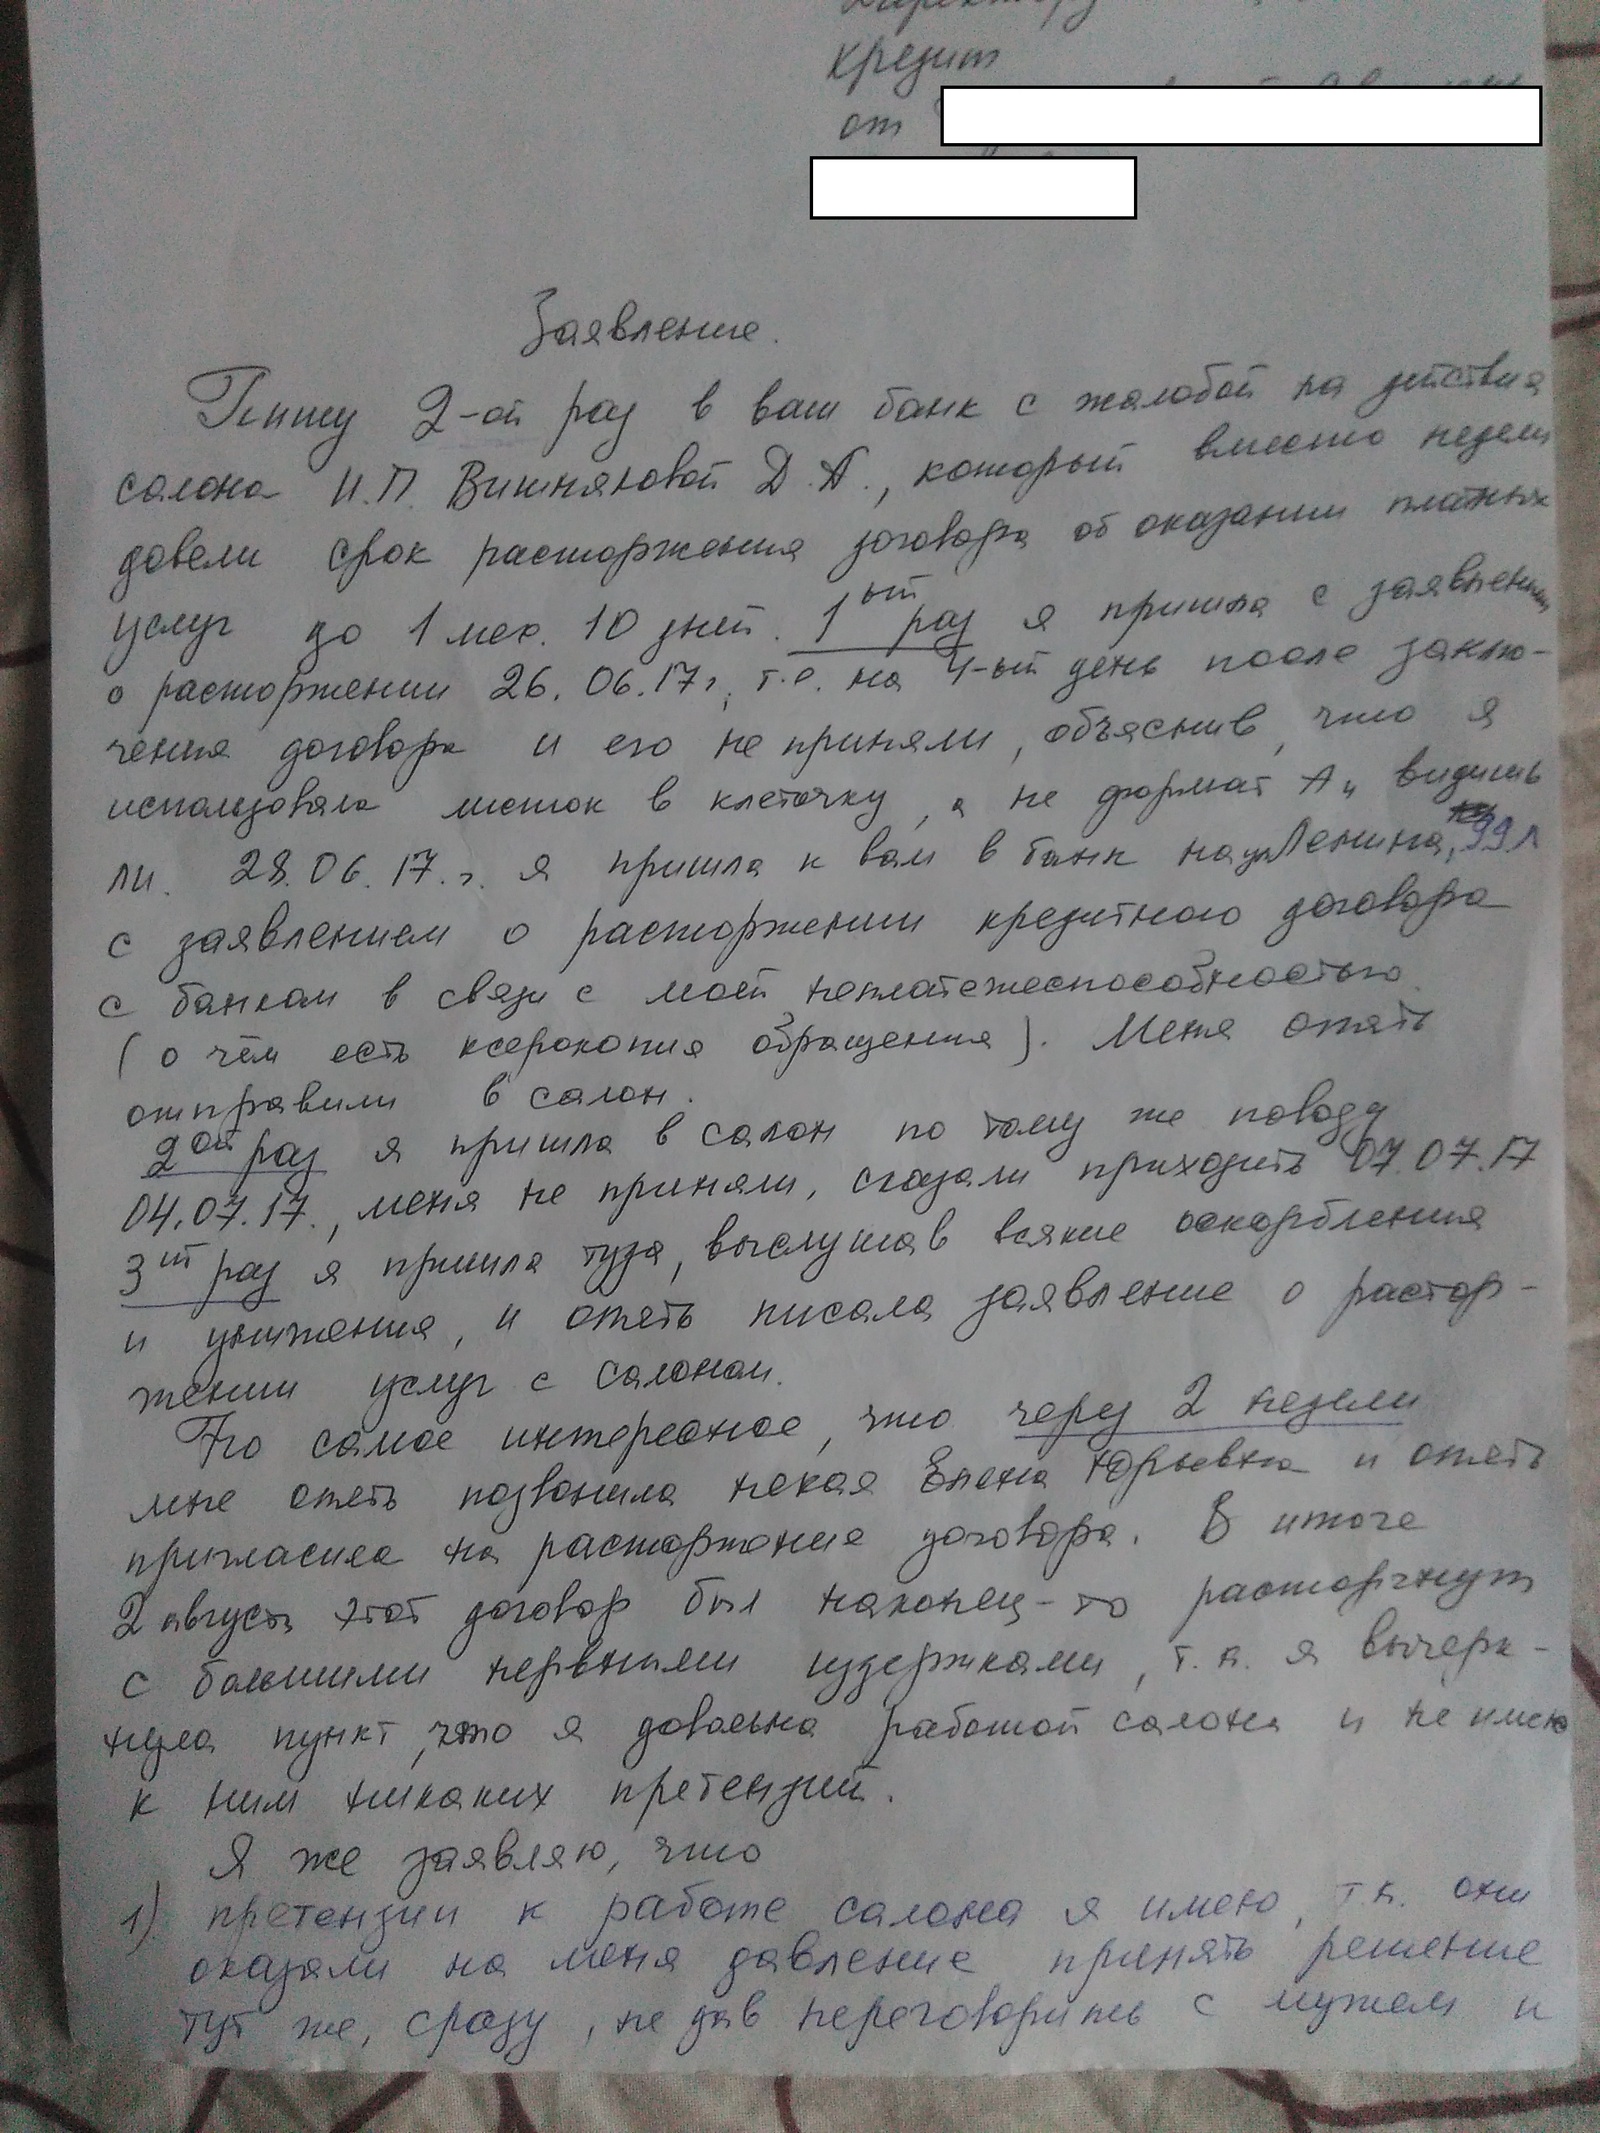 Директору
кредит
от
Заявление.
Пишу 2-ой раз в ваш банк с жалобой на действия
салона И.П. Вишняковой Д.А., который вместо недели
довели срок расторжения договора об оказании платных
услуг до 1 мес. 10 дней. 1ый раз я пришла с заявлением
о расторжении 26.06.17г., т.е. на 4-ый день после заклю-
чения договора и его не приняли, объяснив, что я
использовала листок в клеточку, а не формат А4 видишь
ли. 28.06.17.г. я пришла к вам в банк на ул Ленина, 99
с заявлением о расторжении кредитного договора
с банком в связи с моей неплатежеспособностью
(о чём есть ксерокопия обращения). Меня опять
отправили в салон.
2ой раз я пришла в салон по тому же поводу
04.07.17., меня не приняли, сказали приходить 07.07.17
3ий раз я пришла туда, выслушав всякие оскорбления
и унижения, и опять писала заявление о растор-
жении услуг с салоном.
Но самое интересное, что через 2 недели
мне опять позвонила некая Елена Юрьевна и опять
пригласила на расторжение договора. В итоге
2 августа этот договор был наконец-то расторгнут
с большими нервными издержками, т.к. я вычерк-
нула пункт, что я довольна работой салона и не имею
к ним никаких претензий.
Я же заявляю, что
1) претензии к работе салона я имею, т.к. они
оказали на меня давление принять решение
тут же, сразу, не дав переговорить с мужем и